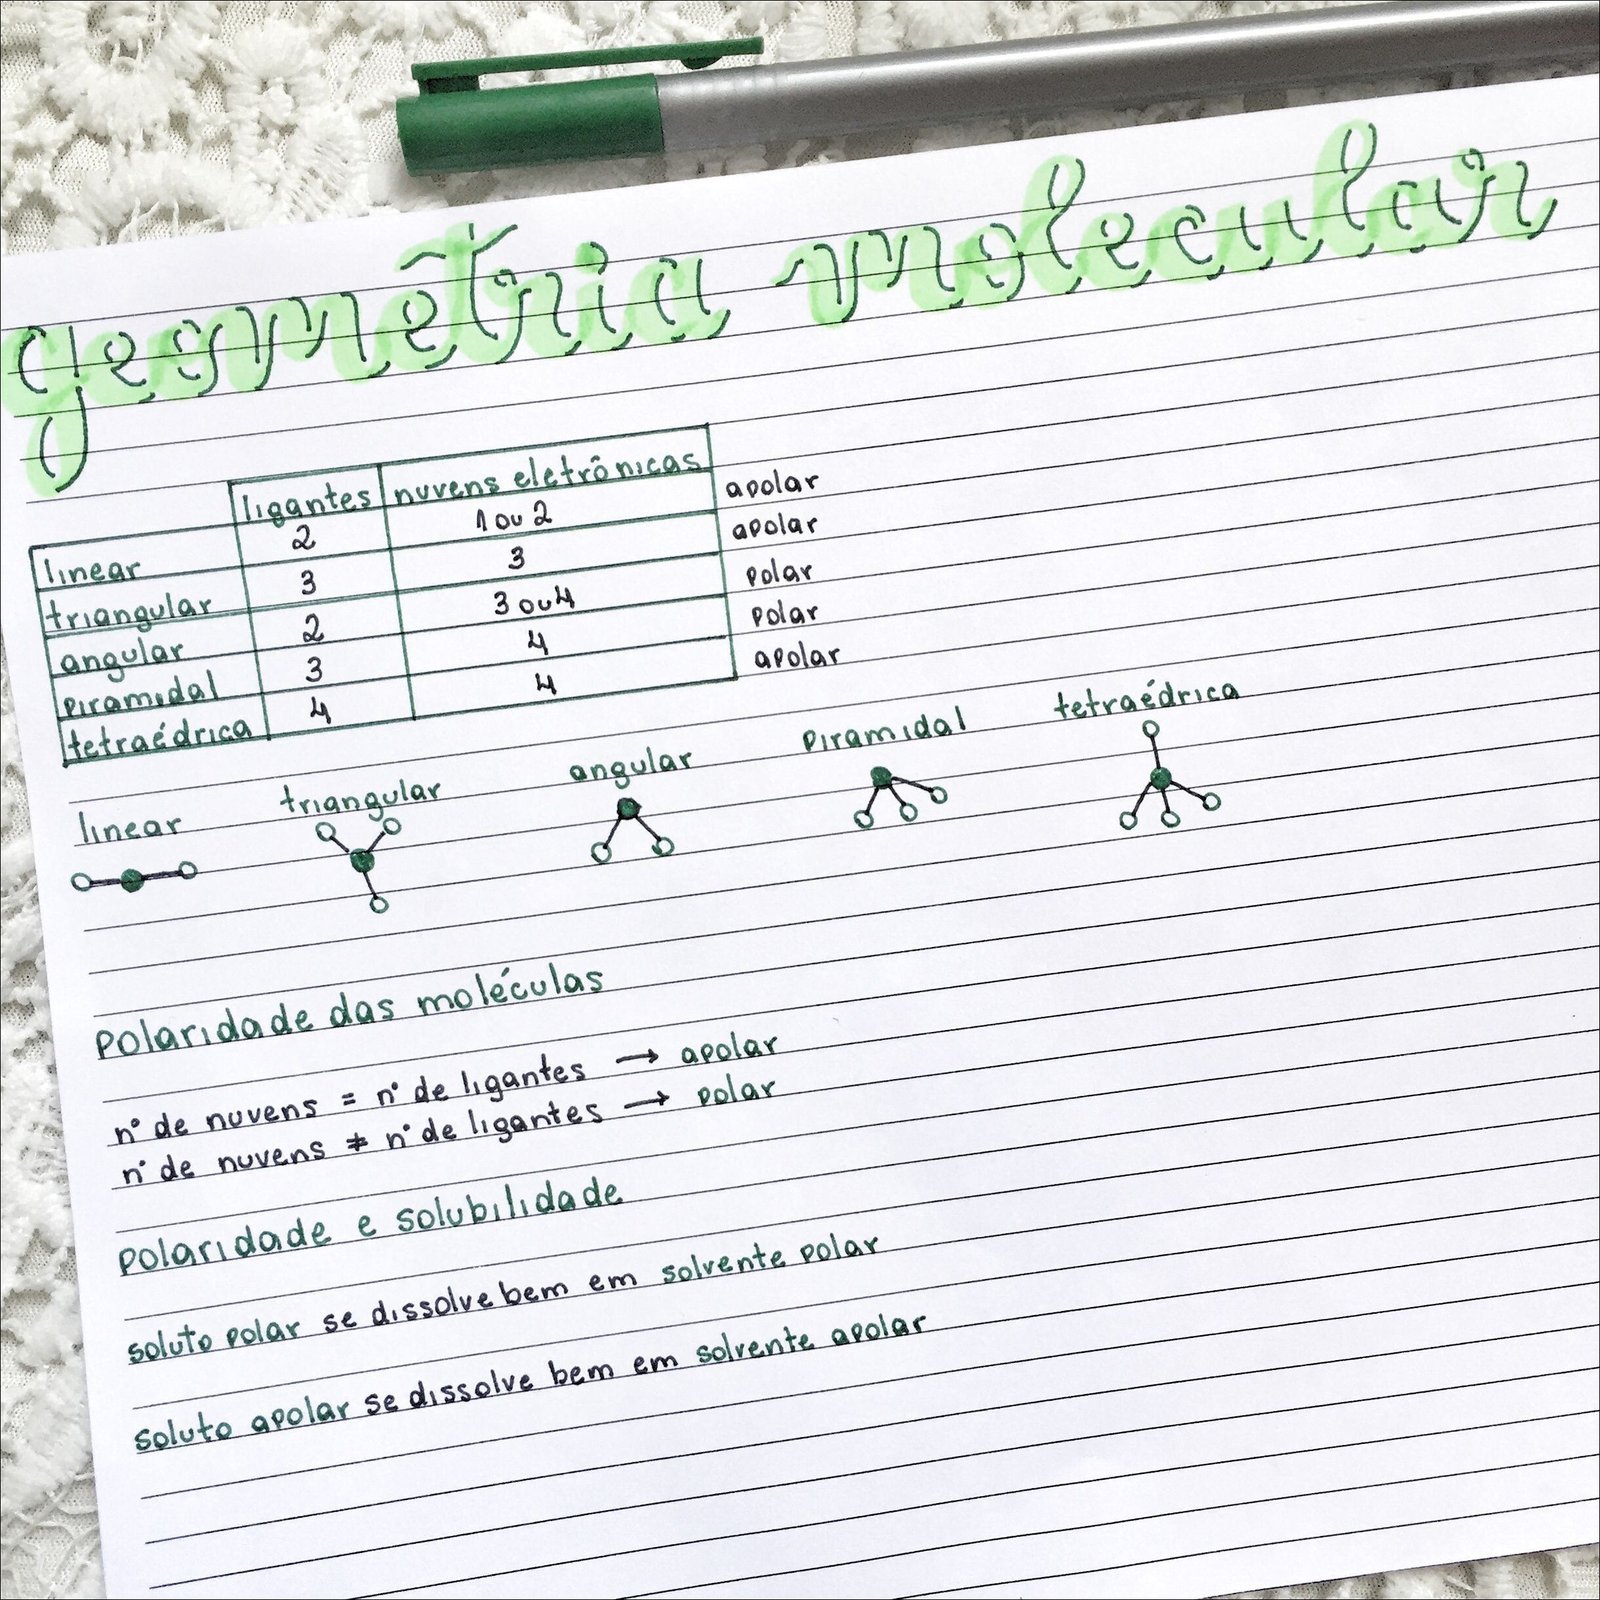 geometria molecular
ligantes nuvens eletrônicas
linear 2 1 ou 2 apolar
triangular 3 3 apolar
angular 2 3 ou 4 polar
piramidal 3 4 polar
tetraédrica 4 4 apolar
linear triangular angular piramidal tetraédrica
polaridade das moléculas
n° de nuvens = n° de ligantes → apolar
n° de nuvens ≠ n° de ligantes → polar
polaridade e solubilidade
soluto polar se dissolve bem em solvente polar
soluto apolar se dissolve bem em solvente apolar